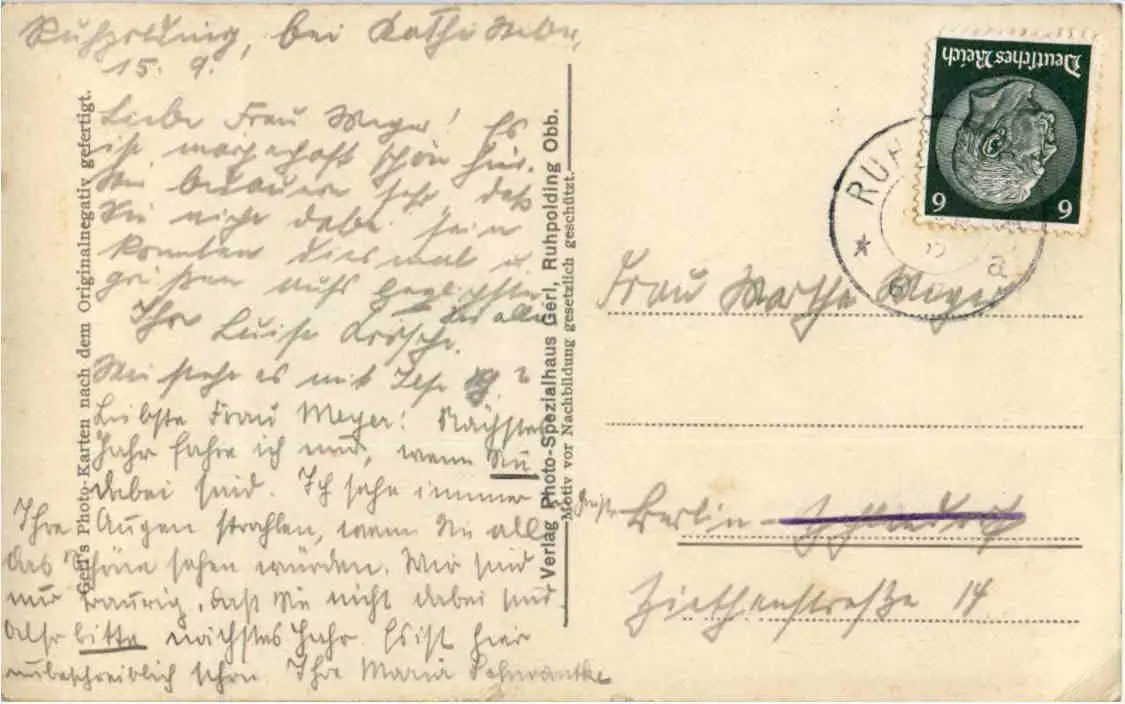 Ruhpolding, bei
15. 9.
Liebe Frau Meyer! Es
ist märchenhaft schön hier.
Wir bedauern sehr, daß
Sie nicht dabei sein
konnten diesmal u.
grüßen aufs herzlichste
Sie alle
Ihre Luise
Wie steht es mit
Liebste Frau Meyer! Nächstes
Jahr fahre ich nur, wenn Sie
dabei sind. Ich sehe immer
Ihre Augen strahlen, wenn Sie all
das Schöne sehen würden. Wir sind
nur traurig, daß Sie nicht dabei sind
also bitte nächstes Jahr. Es ist hier
unbeschreiblich schön. Ihre Maria Schwantke
Gerl's Photo-Karten nach dem Originalnegativ gefertigt.
Verlag Photo-Spezialhaus Gerl, Ruhpolding Obb.
Motiv vor Nachbildung gesetzlich geschützt.
Deutsches Reich
6 6
RUH
a
Frau Marthe Meyer
Berlin -
Ziethenstraße 14